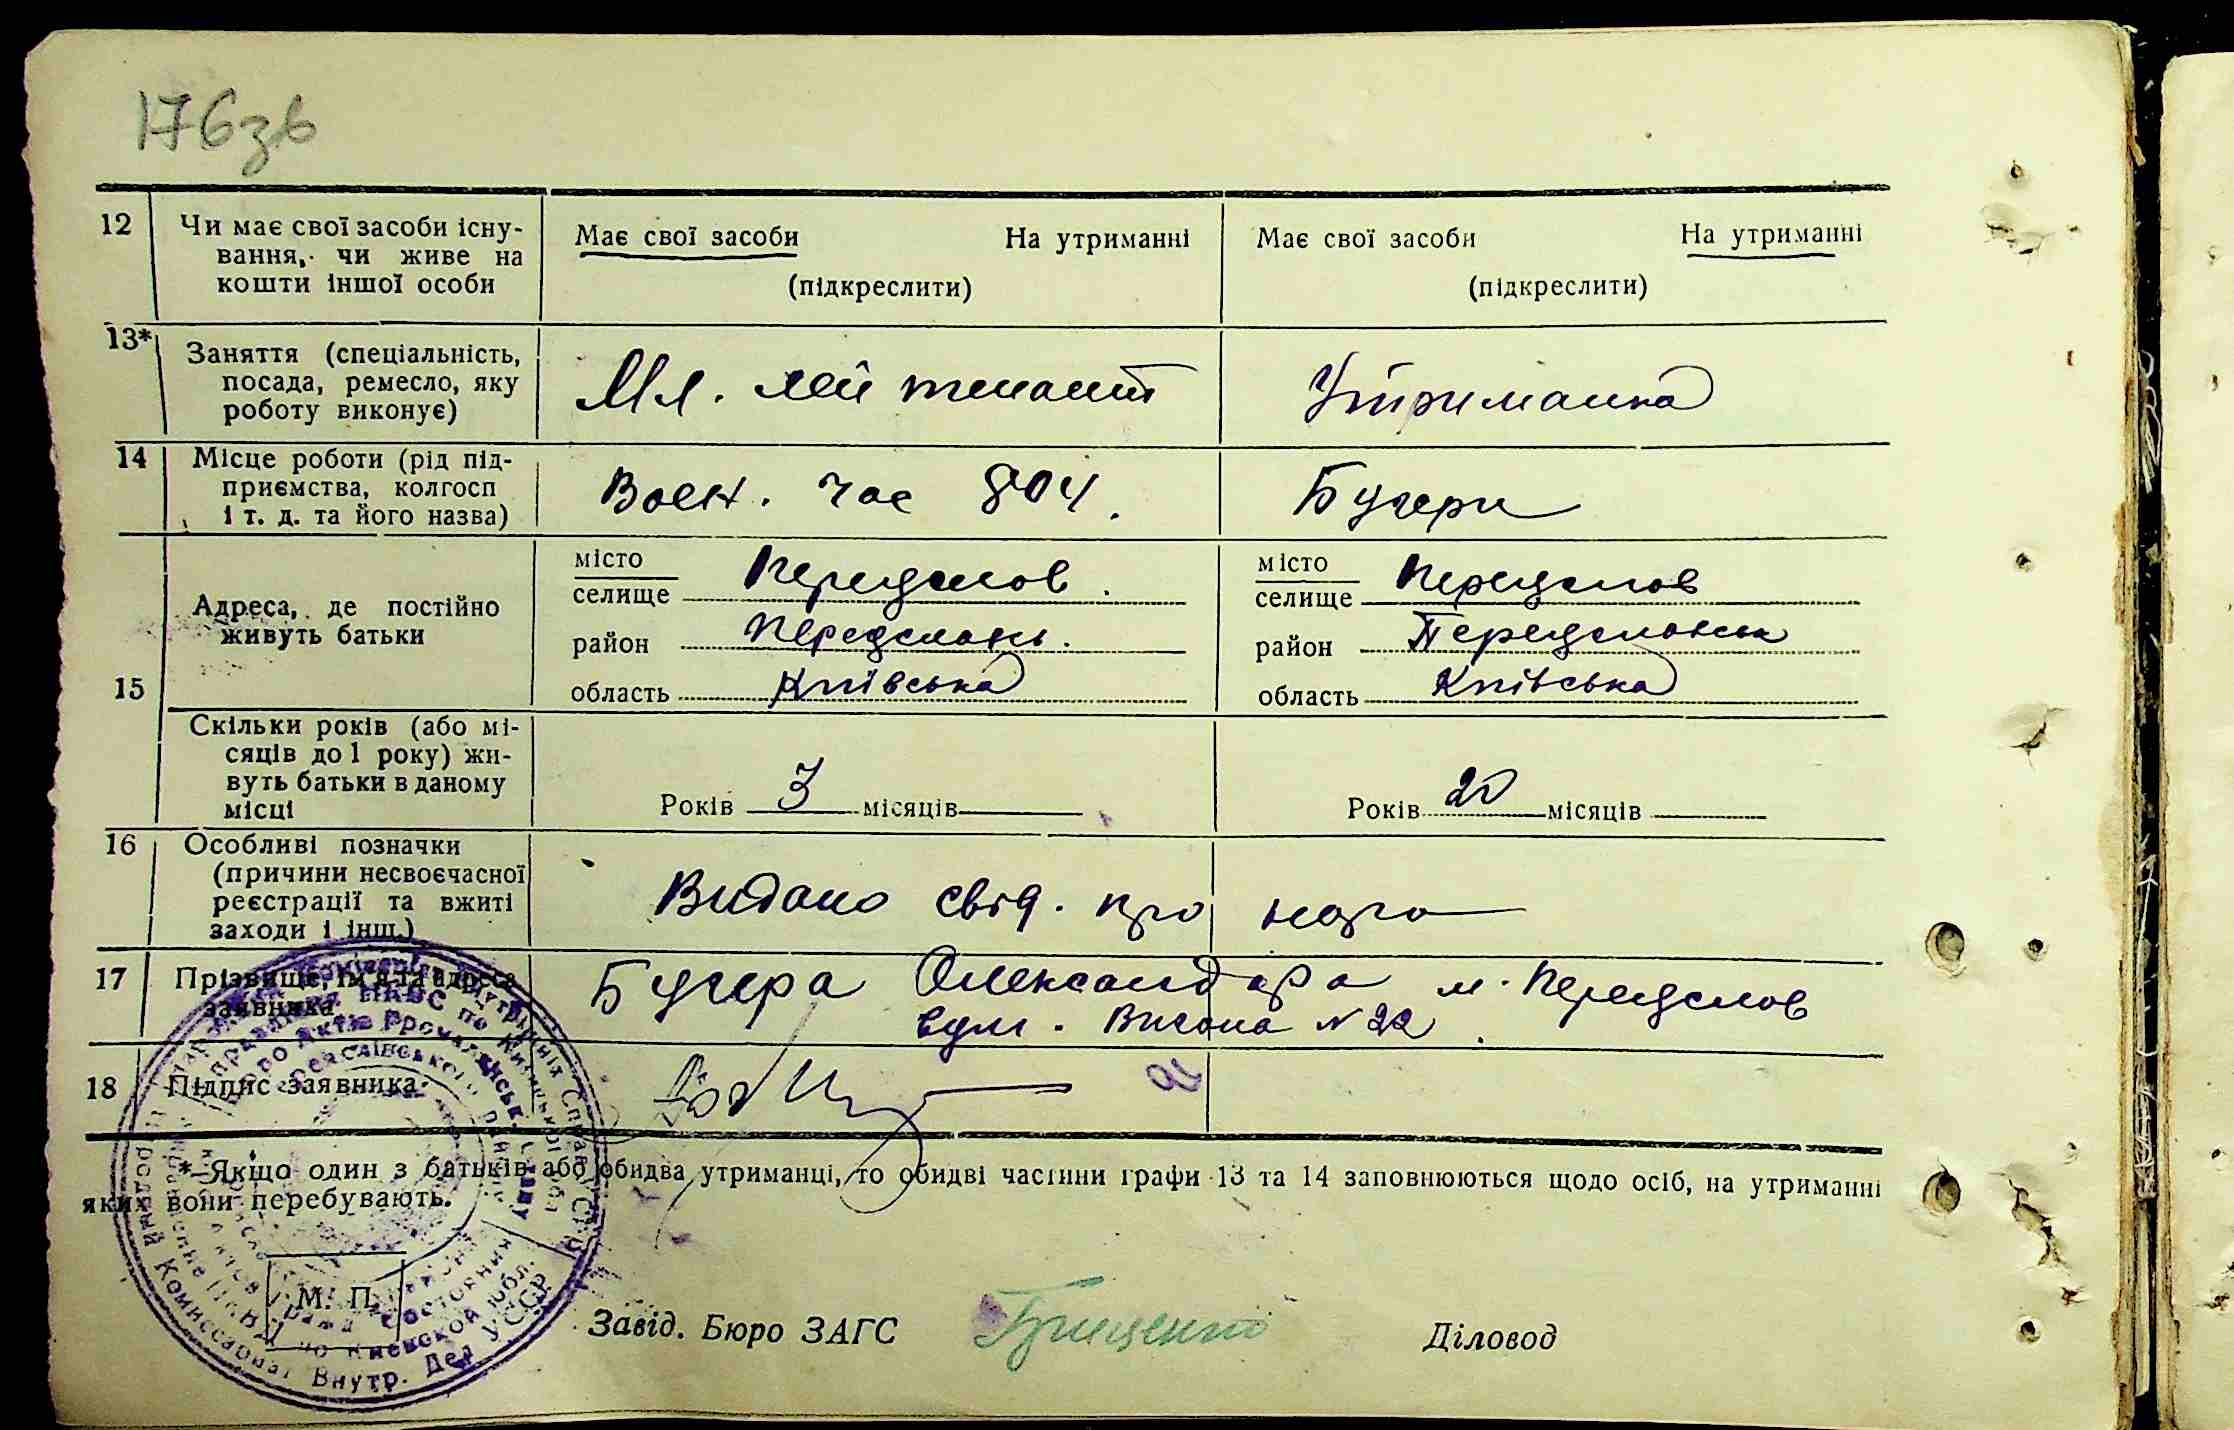 176зв
12 Чи має свої засоби існу-
вання, чи живе на
кошти іншої особи
Має свої засоби На утриманні
(підкреслити)
Має свої засоби На утриманні
(підкреслити)
13* Заняття (спеціальність,
посада, ремесло, яку
роботу виконує)
Мл. лейтенант
Утриманка
14 Місце роботи (рід під-
приємства, колгосп
і т. д. та його назва)
Воен. час 804.
Бугери
15 Адреса, де постійно
живуть батьки
місто
селище Переяслов.
район Переяславс.
область Київська
місто
селище Переяслов
район Переяславськ
область Київська
Скільки років (або мі-
сяців до 1 року) жи-
вуть батьки в даному
місці
Років 3 місяців
Років 20 місяців
16 Особливі позначки
(причини несвоєчасної
реєстрації та вжиті
заходи і інш.)
Видано свід. про народ
17 Прізвище, ім'я та адреса
заявника
Бугера Олександра м. Переяслов
вул. Висока № 22
18 Підпис заявника
* Якщо один з батьків або обидва утриманці, то обидві частини графи 13 та 14 заповнюються щодо осіб, на утриманні
яких вони перебувають.
М. П.
Завід. Бюро ЗАГС Грищенко Діловод
Комиссариат Внутр. Дел УССР